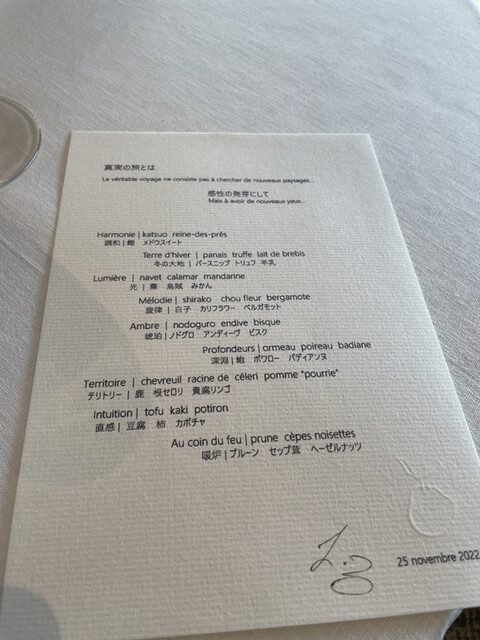 真実の旅とは
Le véritable voyage ne consiste pas à chercher de nouveaux paysages...
感性の発芽にして
Mais à avoir de nouveaux yeux...
Harmonie | katsuo reine-des-près
調和 | 鰹 メドウスイート
Terre d'hiver | panais truffe lait de brebis
冬の大地 | パースニップ トリュフ 羊乳
Lumière | navet calamar mandarine
光 | 蕪 烏賊 みかん
Mélodie | shirako chou fleur bergamote
旋律 | 白子 カリフラワー ベルガモット
Ambre | nodoguro endive bisque
琥珀 | ノドグロ アンディーヴ ビスク
Profondeurs | ormeau poireau badiane
深淵 | 鮑 ポワロー バディアンヌ
Territoire | chevreuil racine de céleri pomme "pourrie"
テリトリー | 鹿 根セロリ 貴腐リンゴ
Intuition | tofu kaki potiron
直感 | 豆腐 柿 カボチャ
Au coin du feu | prune cèpes noisettes
暖炉 | プルーン セップ茸 ヘーゼルナッツ
25 novembre 2022